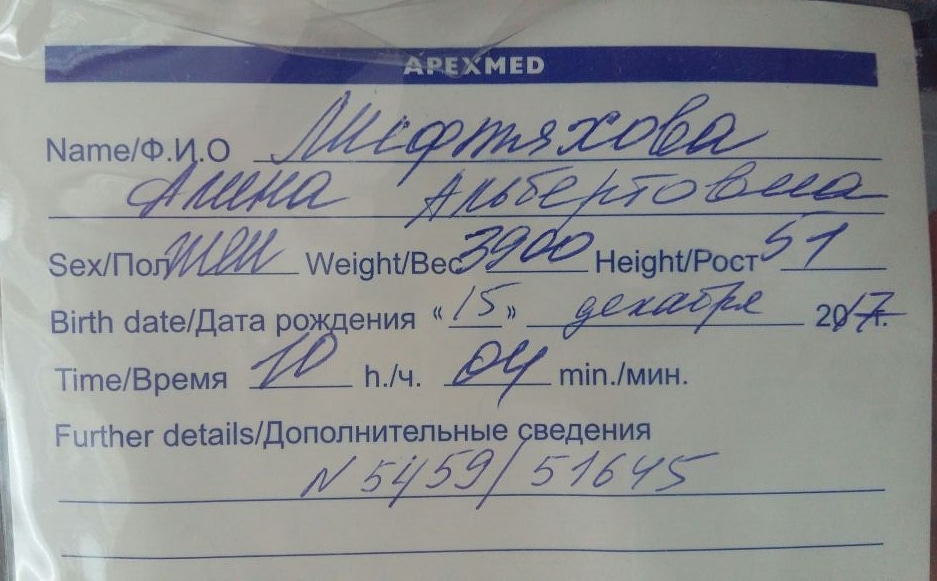 APEXMED
Name/Ф.И.О Мифтяхова
Алина Альбертовна
Sex/Пол жен Weight/Вес 3900 Height/Рост 51
Birth date/Дата рождения «15» декабря 2017г.
Time/Время 10 h./ч. 04 min./мин.
Further details/Дополнительные сведения
N 5459/51645